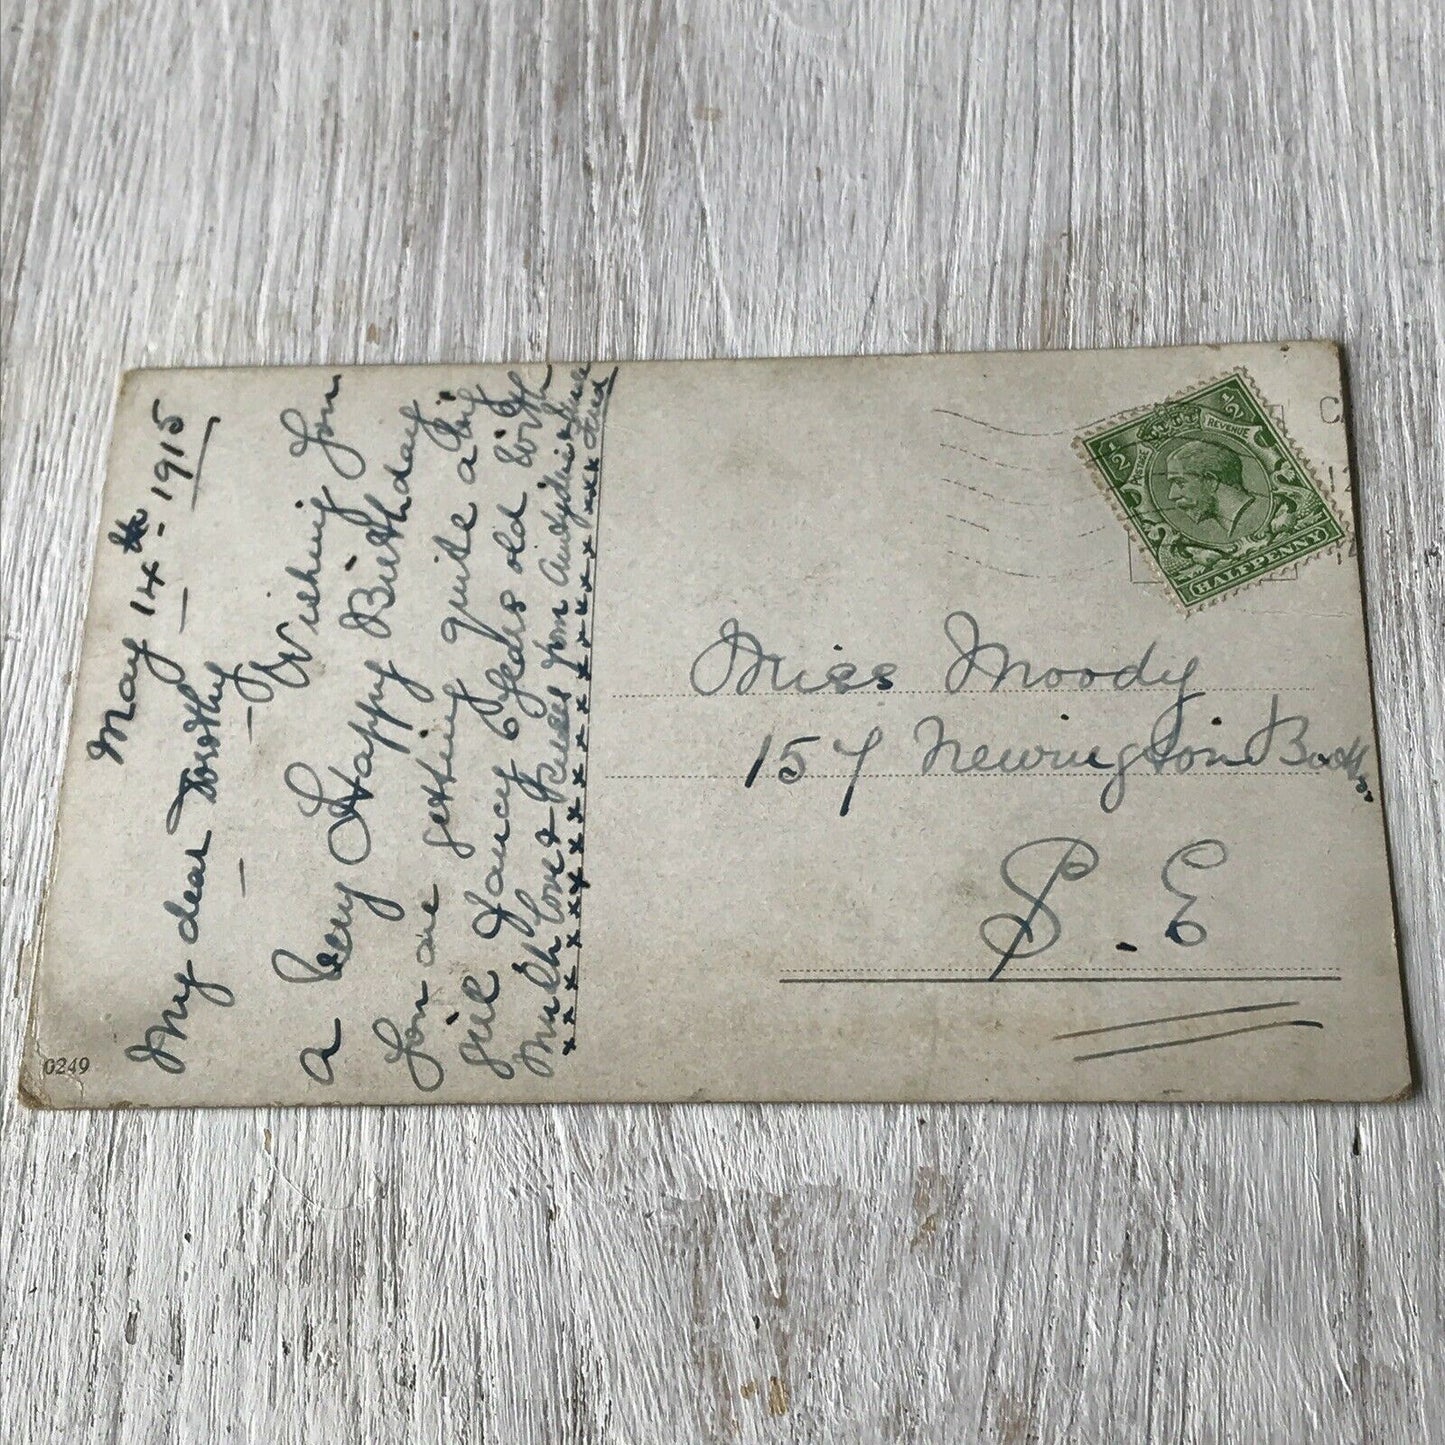 May 14th - 1915
My dear Dorothy
Wishing you
a very Happy Birthday
you are getting quite a big
girl fancy 6 years old with
much love & kisses from Aunty
xxxxxxxxxxxxxxxxxxxx
0249
½ ½
POSTAGE REVENUE
HALFPENNY
Miss Moody
157 Newington Butts
S.E